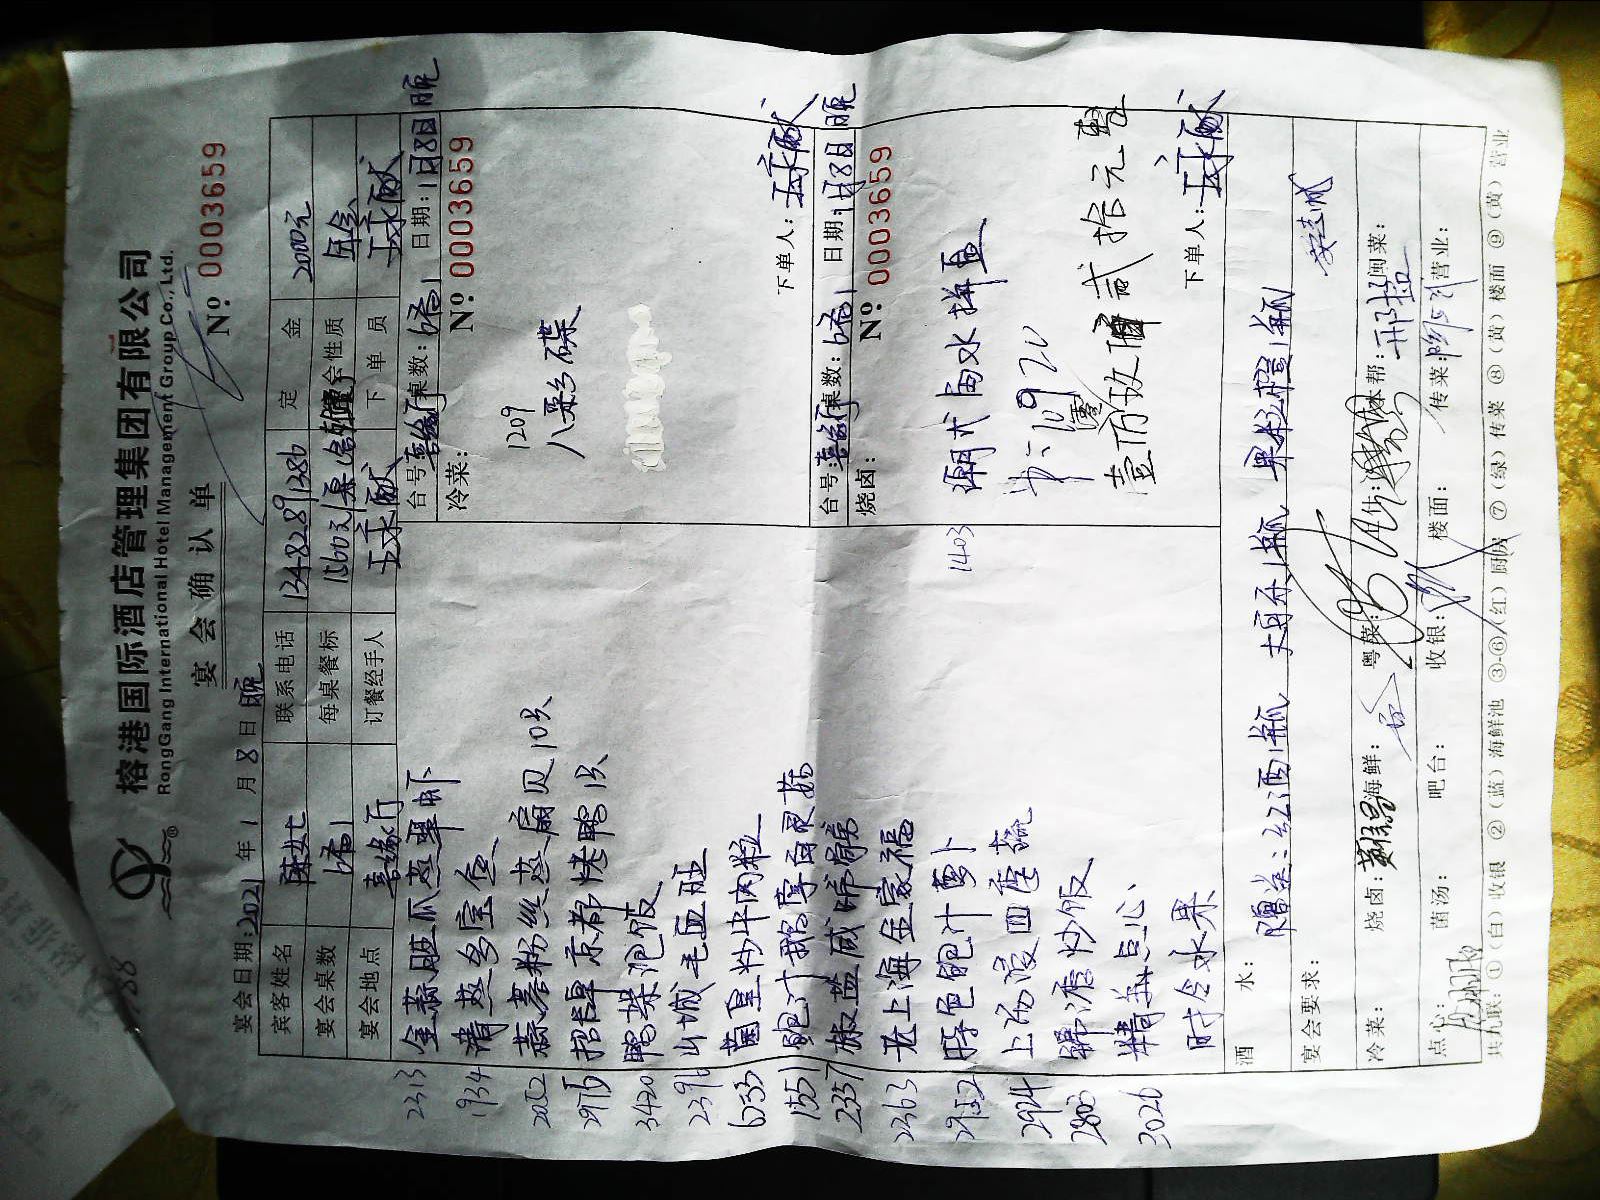 榕港国际酒店管理集团有限公司
RongGang International Hotel Management Group Co., Ltd.
宴会确认单
宴会日期:2021年1月8日晚
№ 0003659
宾客姓名 陈女士 联系电话 13482891386 定金 2000元
宴会桌数 6备1 每桌餐标 宴会性质 年会
宴会地点 喜缘厅 订餐经手人 王永献 下单员 王永献
2313 金蒜胜瓜蒸翠虾
1934 清蒸多宝鱼
2002 蒜蓉粉丝蒸扇贝10只
2976 招牌京都烤鸭1只
3420 鸭架泡饭
2396 山城毛血旺
6733 菌皇炒牛肉粒
1551 鲍汁鹅掌百灵菇
2357 椒盐咸蹄髈
2363 老上海全家福
2952 酱色鲍汁萝卜
2924 上汤浸四季蔬
2803 瑶柱炒饭
3026 精美点心
时令水果
台号:喜缘厅 桌数:6备1 日期:1月8日晚
冷菜:
№ 0003659
1209
八彩碟
下单人:王永献
台号:喜缘厅 桌数:6备1 日期:1月8日晚
烧卤:
№ 0003659
1403 潮式卤水拼盘
10920
壹万玖佰贰拾元整
下单人:王永献
酒水: 赠送:红酒1瓶 大可乐1瓶 果粒橙1瓶
宴会要求:
冷菜: 烧卤: 海鲜: 粤菜: 本帮: 闽菜:
点心: 菌汤: 吧台: 收银: 楼面: 传菜: 营业:
共九联:①(白)收银 ②(蓝)海鲜池 ③-⑥(红)厨房 ⑦(绿)传菜 ⑧(黄)楼面 ⑨(黄)营业